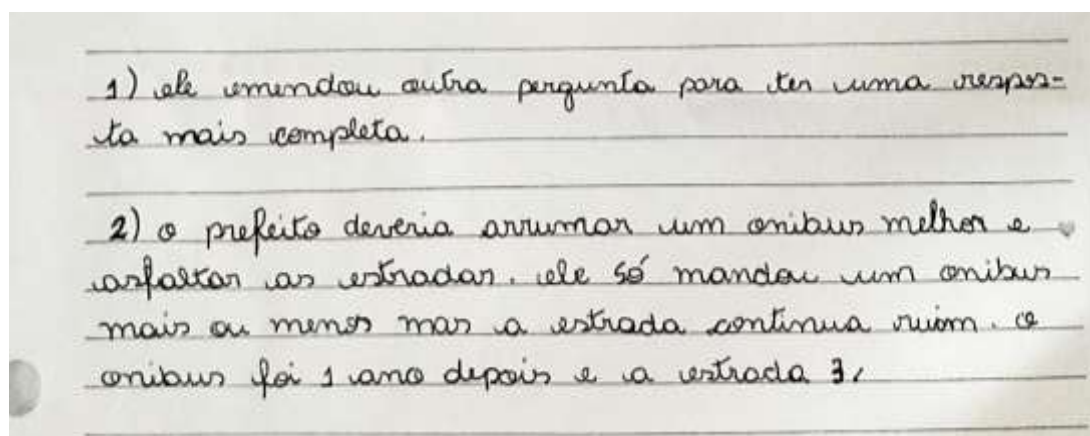 1) ele emendou outra pergunta para ter uma respos-
ta mais completa.
2) o prefeito deveria arrumar um onibus melhor e
asfaltar as estradas. ele só mandou um onibus
mais ou menos mas a estrada continua ruim. o
onibus foi 1 ano depois e a estrada 3.